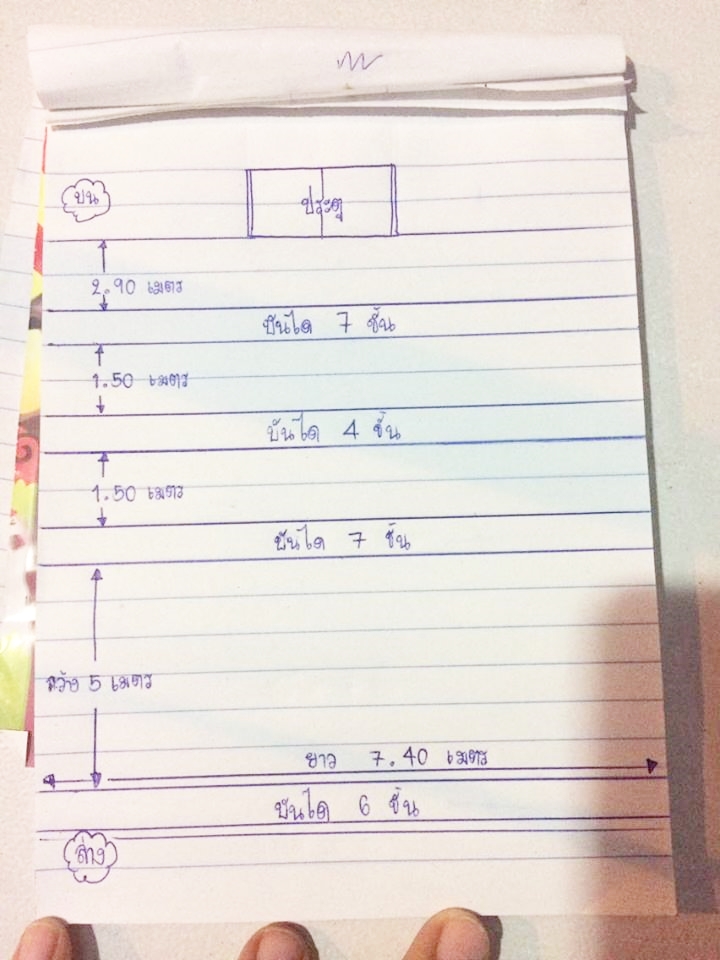 บน
ประตู
2.90 เมตร
บันได 7 ชั้น
1.50 เมตร
บันได 4 ชั้น
1.50 เมตร
บันได 7 ชั้น
กว้าง 5 เมตร
ยาว 7.40 เมตร
บันได 6 ชั้น
ล่าง